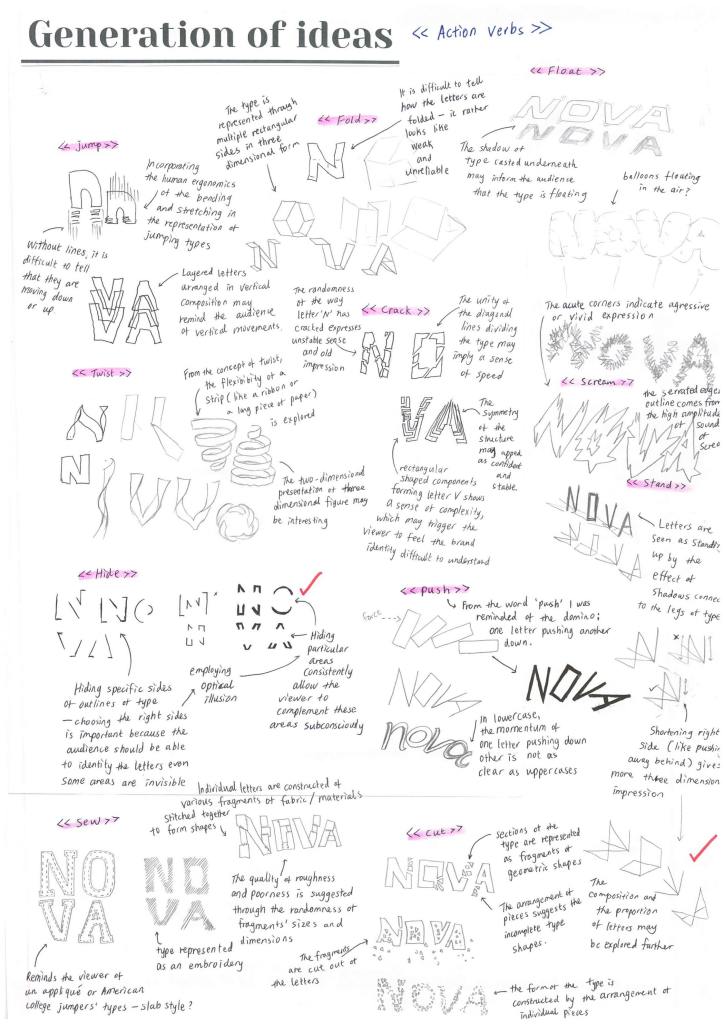 Generation of ideas
<< Action Verbs >>
<< Float >>
The shadow of
type casted underneath
may inform the audience
that the type is floating
balloons floating
in the air?
The type is
represented through
multiple rectangular
sides in three
dimensional form
<< Fold >>
It is difficult to tell
how the letters are
folded – it rather
looks like
weak
and
unreliable
<< jump >>
Incorporating
the human ergonomics
of the bending
and stretching in
the representation of
jumping types
Without lines, it is
difficult to tell
that they are
moving down
or up
Layered letters
arranged in vertical
composition may
remind the audience
of vertical movements.
NOVA
NOVA
NOVA
N
NOVA
VA
The randomness
of the way
letter 'N' has
cracked expresses
unstable sense
and old
impression
<< Crack >>
The unity of
the diagonal
lines dividing
the type may
imply a sense
of speed
NO
VA
The
Symmetry
of the
structure
may appeal
as confident
and
stable.
rectangular
shaped components
forming letter V shows
a sense of complexity,
which may trigger the
viewer to feel the brand
identity difficult to understand
The acute corners indicate agressive
or vivid expression
NOVA
<< Scream >>
the serrated edges
outline comes from
the high amplitude
of sound
of
Screa
NOVA
<< Twist >>
From the concept of twist,
the flexibility of a
strip (like a ribbon or
a long piece of paper)
is explored
The two-dimensional
presentation of three
dimensional figure may
be interesting
N
<< Stand >>
NOVA
NOVA
Letters are
seen as standin
up by the
effect of
Shadows connec
to the legs of type
Shortening right
side (like pushin
away behind) gives
more three dimension
impression
The
composition and
the proportion
of letters may
be explored further
<< Hide >>
NO
VA
[N]
Hiding specific sides
of outlines of type
– choosing the right sides
is important because the
audience should be able
to identify the letters even
Some areas are invisible
employing
optical
illusion
Hiding
particular
areas
Consistently
allow the
viewer to
complement these
areas subconsciously
<< push >>
From the word 'push' I was
reminded of the domino;
one letter pushing another
down.
force
NOVA
NOVA
nova
In lowercase,
the momentum of
one letter pushing down
other is not as
clear as uppercases
<< Sew >>
Individual letters are constructed of
various fragments of fabric / materials
stitched together
to form shapes
NOVA
The quality of roughness
and poorness is suggested
through the randomness of
fragments' sizes and
dimensions
NO
VA
NO
VA
type represented
as an embroidary
Reminds the viewer of
an appliqué or American
college jumpers' types – slab style?
<< Cut >>
NOVA
Sections of the
type are represented
as fragments of
geometric shapes
The arrangement of
pieces suggests the
incomplete type
shapes.
NOVA
The fragments
are cut out of
the letters
NOVA
the form of the type is
constructed by the arrangement of
individual pieces